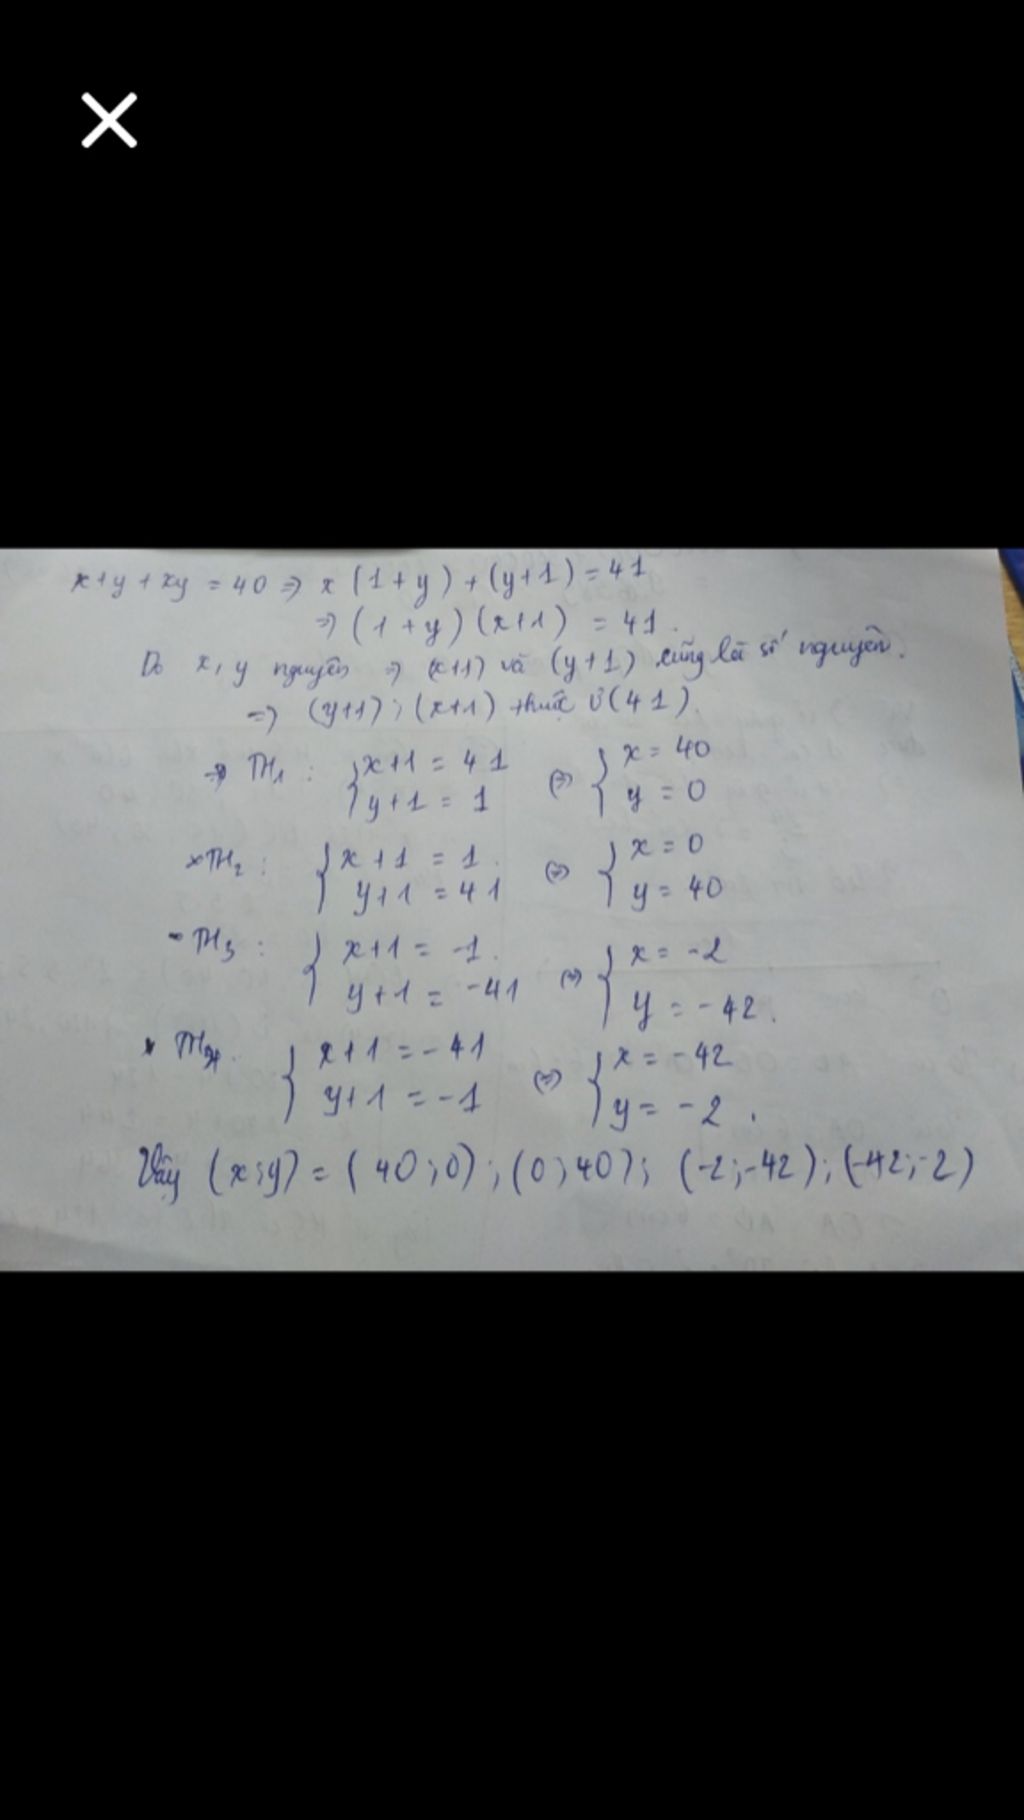 x+y+xy = 40 => x(1+y)+(y+1)=41
=> (1+y)(x+1) = 41.
Do x, y nguyên => (x+1) và (y+1) cũng là số nguyên.
=> (y+1); (x+1) thuộc Ư(41).
=> TH1: { x+1 = 41 <=> { x = 40
y+1 = 1 y = 0
*TH2: { x+1 = 1. <=> { x = 0
y+1 = 41 y = 40
- TH3: { x+1 = -1. <=> { x = -2
y+1 = -41 y = -42.
* TH4. { x+1 = -41 <=> { x = -42
y+1 = -1 y = -2.
Vậy (x;y) = (40;0); (0;40); (-2;-42); (-42;-2)